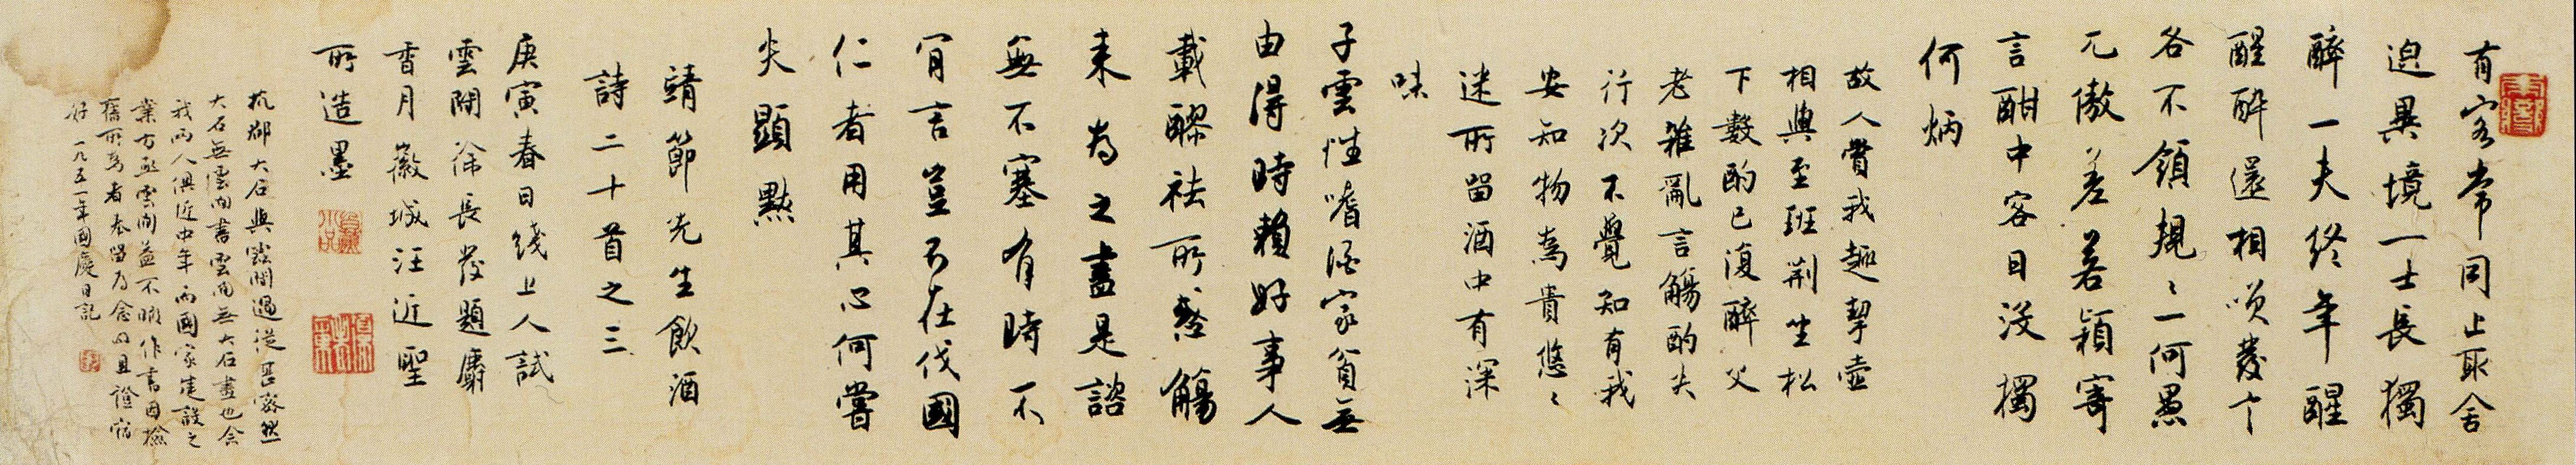 有客常同止取舍
迥異境一士長獨
醉一夫終年醒
醒醉還相唉發言
各不領規〻一何愚
兀傲差若穎寄
言酣中客日沒獨
何炳
故人賞我趣挈壺
相與至班荊坐松
下數酌已復醉父
老雜亂言觴酌失
行次不覺知有我
安知物為貴悠〻
迷所留酒中有深
味
子雲性嗜酒家貧無
由得時賴好事人
載醪祛所惑觴
來為之盡是諮
無不塞有時不
肯言豈不在伐國
仁者用其心何嘗
失顯默
靖節先生飲酒
詩二十首之三
庚寅春日綫上人試
雲閒徐長發題麝
香月徽城汪近聖
所造墨
杭郡大石與雲閒過從甚密然
大石無雲閒書雲閒無大石畫也今
我兩人俱近中年而國家建設之
業方亟雲閒益不暇作書因檢
舊所為者奉留為念且證宿
好一九五一年國慶日記